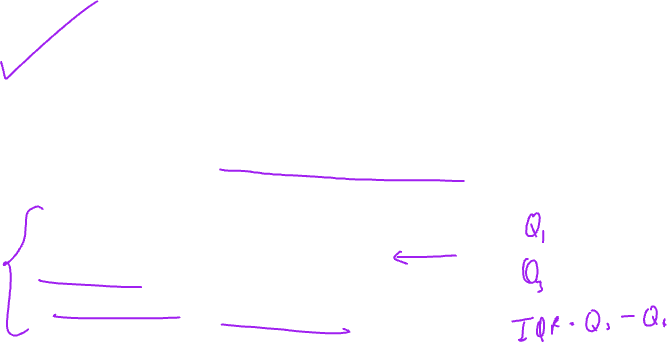 Q₁
Q₃
IQR = Q₃ - Q₁